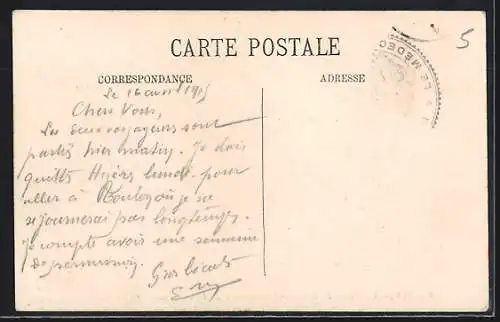 5
LE MEDEC
CARTE POSTALE
CORRESPONDANCE
ADRESSE
Le 16 avril 1915
Chers Vous,
Les voyageurs sont
partis hier matin. Je dois
quitter Hyères lundi pour
aller à Toulon où je ne
séjournerai pas longtemps.
Je compte avoir une semaine
de permission.
Gros bécots